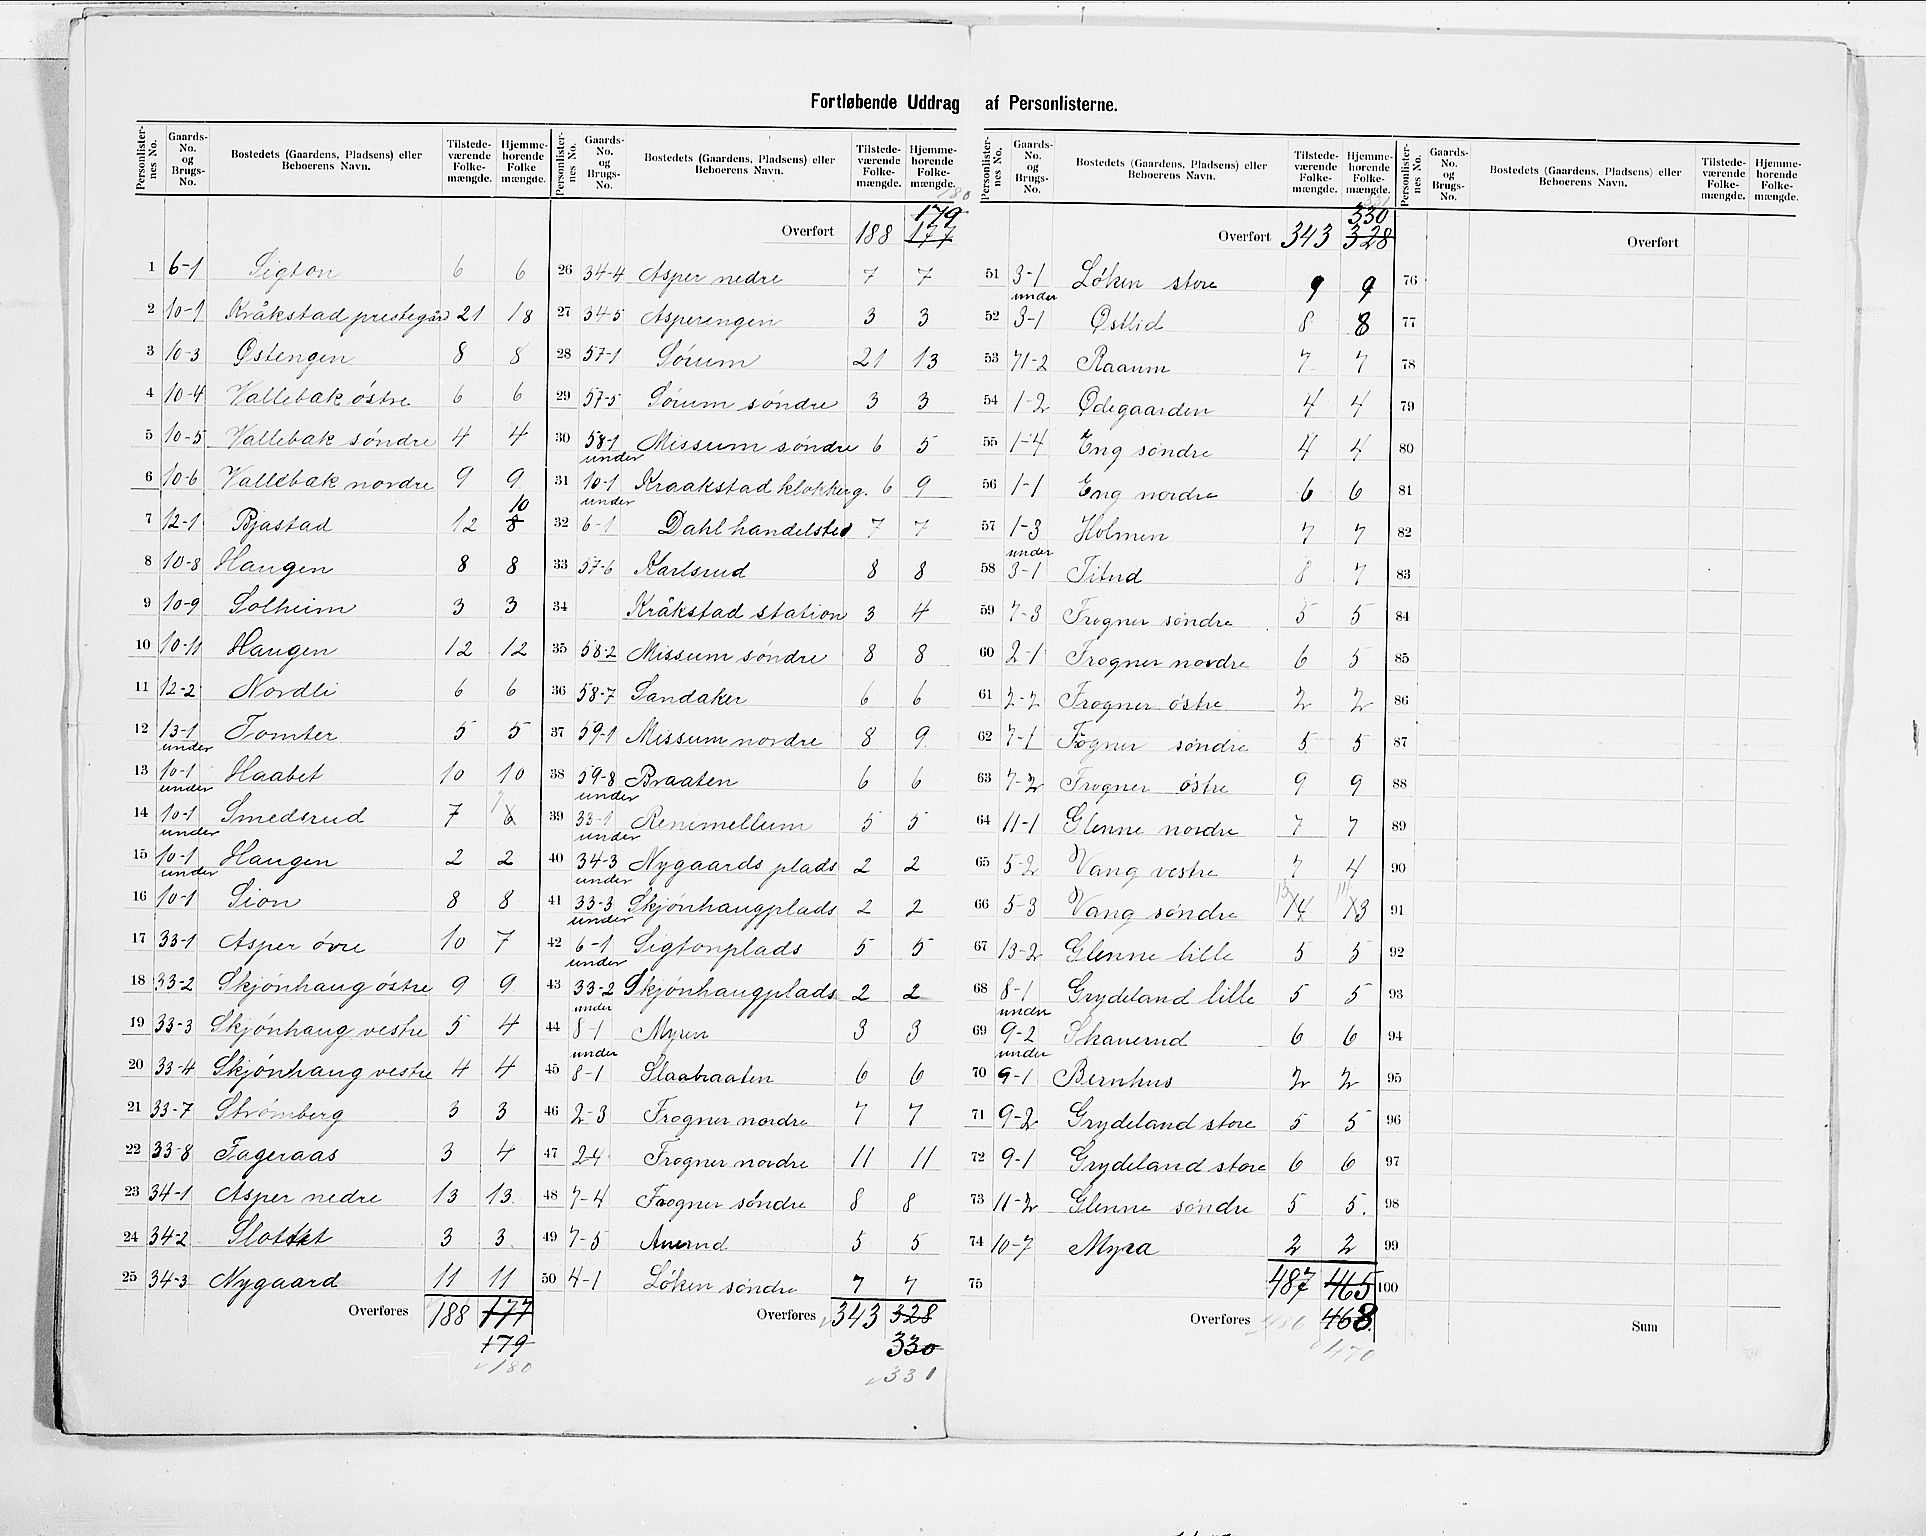 Fortløbende Uddrag af Personlisterne.
Personlisternes No. Gaards-No. og Brugs-No. Bostedets (Gaardens, Pladsens) eller Beboerens Navn. Tilstedeværende Folkemængde. Hjemmehørende Folkemængde.
1 6-1 Sigton 6 6
2 10-1 Kråkstad prestegård 21 18
3 10-3 Østengen 8 8
4 10-4 Vallebak östre 6 6
5 10-5 Vallebak söndre 4 4
6 10-6 Vallebak nordre 9 9
7 12-1 Bjastad 12 8 10
8 10-8 Haugen 8 8
9 10-9 Solheim 3 3
10 10-11 Haugen 12 12
11 12-2 Nordli 6 6
12 13-1 Tomter 5 5
13 under 10-1 Haabet 10 10
14 under 10-1 Smedsrud 7 6 7
15 under 10-1 Haugen 2 2
16 under 10-1 Sion 8 8
17 33-1 Asper övre 10 7
18 33-2 Skjönhaug östre 9 9
19 33-3 Skjönhaug vestre 5 4
20 33-4 Skjönhaug vestre 4 4
21 33-7 Strömberg 3 3
22 33-8 Fageraas 3 4
23 34-1 Asper nedre 13 13
24 34-2 Slottet 3 3
25 34-3 Nygaard 11 11
Overføres 188 177
179
180
Personlisternes No. Gaards-No. og Brugs-No. Bostedets (Gaardens, Pladsens) eller Beboerens Navn. Tilstedeværende Folkemængde. Hjemmehørende Folkemængde.
180
179
Overført 188 177
26 34-4 Asper nedre 7 7
27 34-5 Asperengen 3 3
28 57-1 Sörum 21 13
29 57-5 Sörum söndre 3 3
30 58-1 Missum söndre 6 5
31 under 10-1 Kraakstad klokkerg. 6 9
32 under 6-1 Dahl handelsted 7 7
33 57-6 Karlsrud 8 8
34 Kråkstad station 3 4
35 58-2 Missum söndre 8 8
36 58-7 Sandaker 6 6
37 59-1 Missum nordre 8 9
38 59-8 Braaten 6 6
39 under 33-1 Renimellum 5 5
40 under 34-3 Nygaards plads 2 2
41 under 33-3 Skjönhaugplads 2 2
42 under 6-1 Sigtonplads 5 5
43 under 33-2 Skjönhaugplads 2 2
44 under 8-1 Myren 3 3
45 under 8-1 Slaabraaten 6 6
46 2-3 Frogner nordre 7 7
47 2-4 Frogner nordre 11 11
48 7-4 Frogner söndre 8 8
49 7-5 Auerud 5 5
50 4-1 Löken söndre 7 7
Overføres 343 328
330
331
Personlisternes No. Gaards-No. og Brugs-No. Bostedets (Gaardens, Pladsens) eller Beboerens Navn. Tilstedeværende Folkemængde. Hjemmehørende Folkemængde.
331
330
Overført 343 328
51 3-1 Löken store 9 9
52 under 3-1 Østlid 8 8
53 71-2 Raaum 7 7
54 1-2 Ødegaarden 4 4
55 1-4 Eng söndre 4 4
56 1-1 Eng nordre 6 6
57 1-3 Holmen 7 7
58 under 3-1 Titud 8 7
59 7-3 Frogner söndre 5 5
60 2-1 Frogner nordre 6 5
61 2-2 Frogner östre 2 2
62 7-1 Fogner söndre 5 5
63 7-2 Frogner östre 9 9
64 11-1 Glenne nordre 7 7
65 5-2 Vang vestre 7 4
66 5-3 Vang söndre 14 13
67 13-2 Glenne lille 5 5
68 8-1 Grydeland lille 5 5
69 under 9-2 Skauerud 6 6
70 under 9-1 Bernhus 2 2
71 9-2 Grydeland store 5 5
72 9-1 Grydeland store 6 6
73 11-2 Glenne söndre 5 5.
74 10-7 Myra 2 2
75 487 465
Overføres 486 468
470
Personlisternes No. Gaards-No. og Brugs-No. Bostedets (Gaardens, Pladsens) eller Beboerens Navn. Tilstedeværende Folkemængde. Hjemmehørende Folkemængde.
Overført
76
77
78
79
80
81
82
83
84
85
86
87
88
89
90
91
92
93
94
95
96
97
98
99
100
Sum